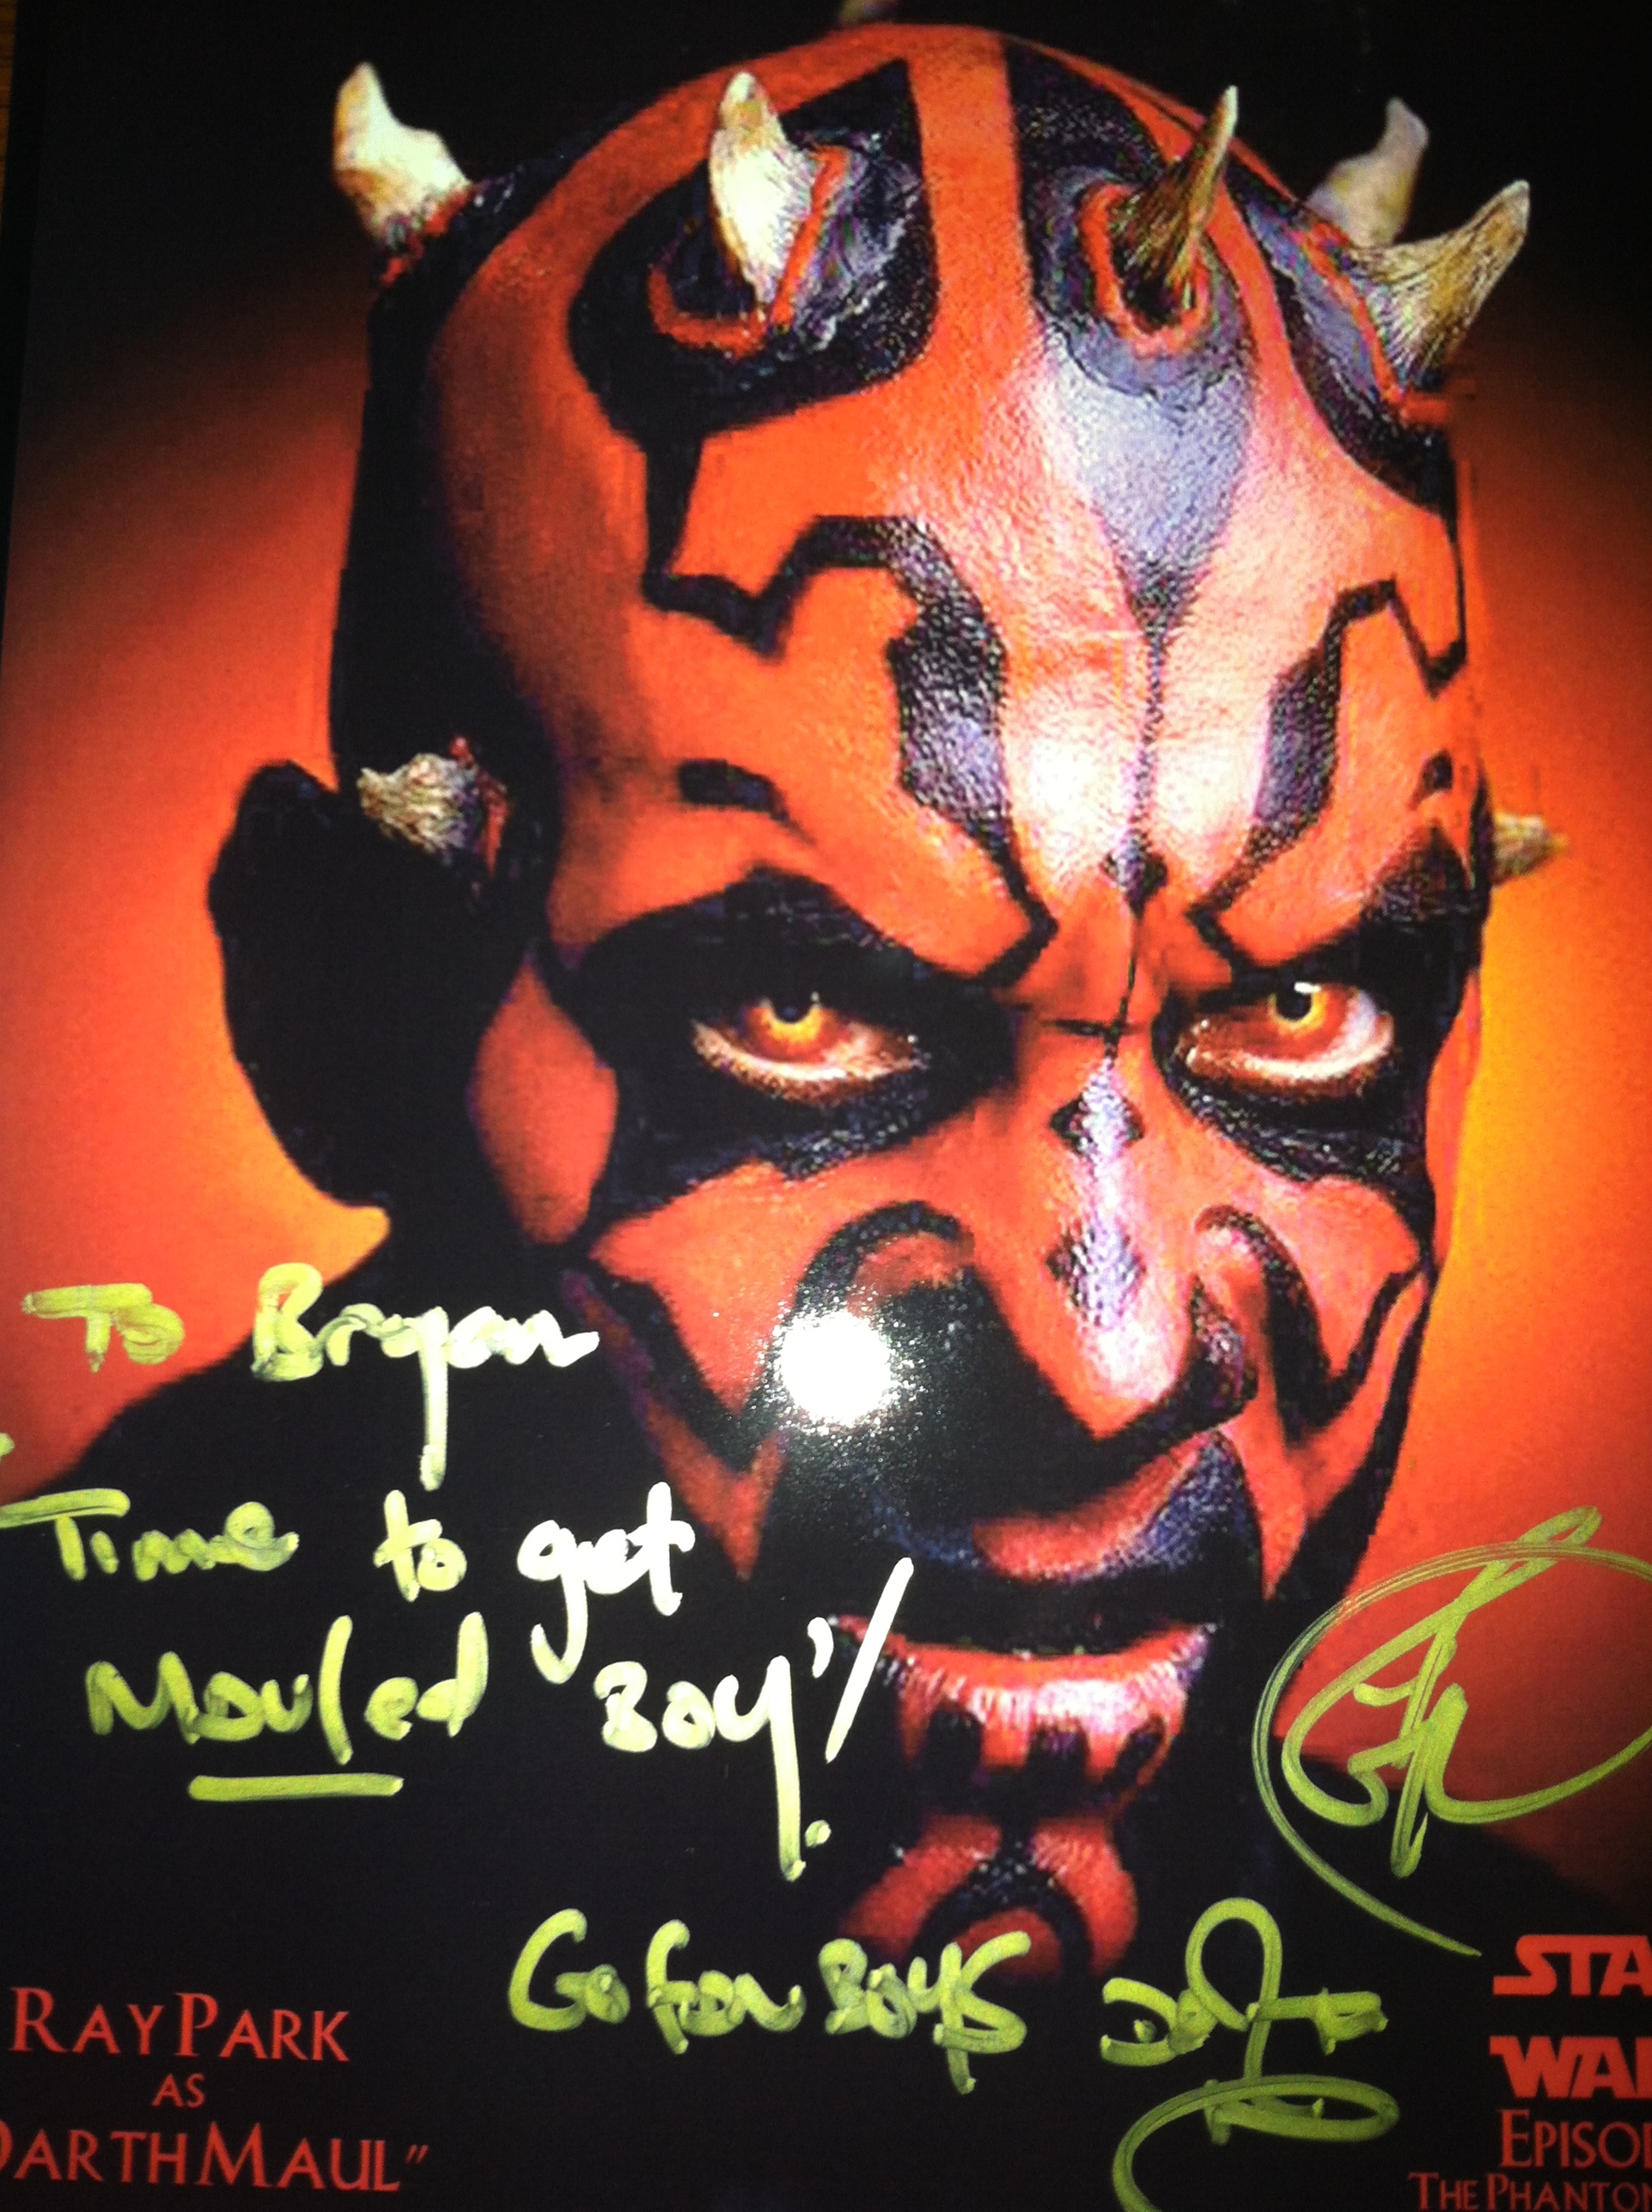 To Bryan
Time to get
Mauled Boy!
Go fan Boys
RAY PARK
AS
DARTH MAUL"
STA
WA
EPISO
THE PHANTO